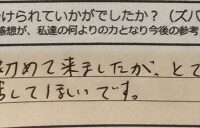 けられていかがでしたか?(ズバ
感想が、私達の何よりの力となり今後の参考
初めて来ましたが、とて
してほしいです。